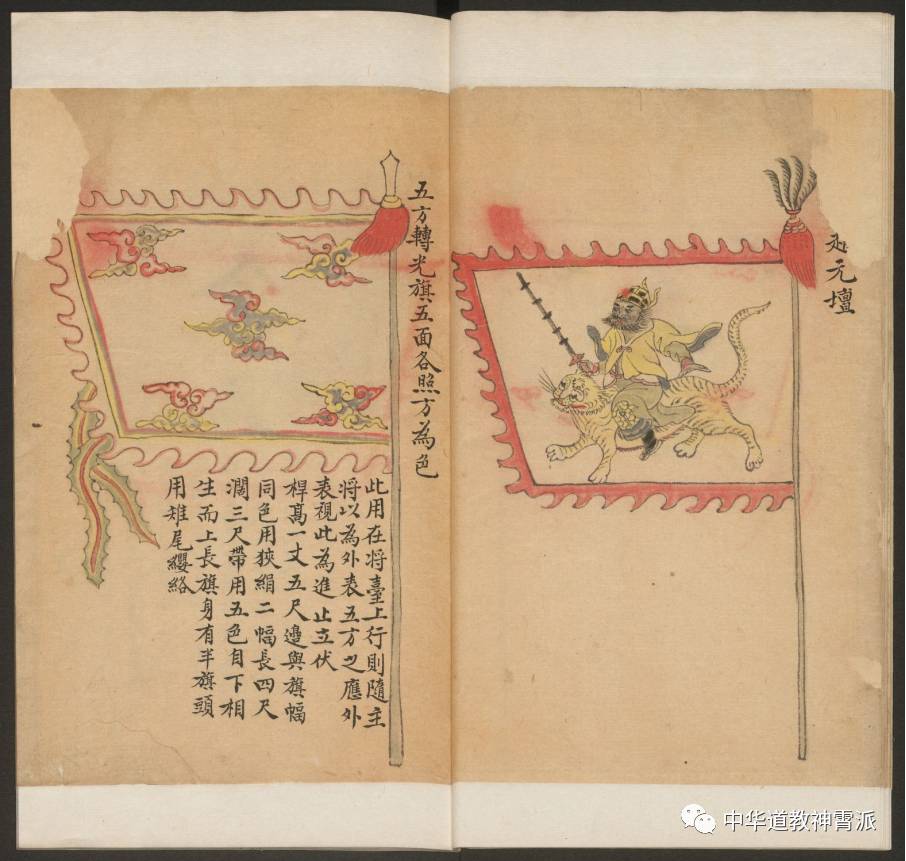 赵元壇
五方轉光旗五面各照方為色
此用在将臺上行則隨主
将以為外表五方之應外
表視此為進止立伏
桿髙一丈五尺邉與旗幅
同色用狹絹二幅長四尺
濶三尺帶用五色自下相
生而上長旗身有半旗頭
用雉尾纓絡
中华道教神霄派